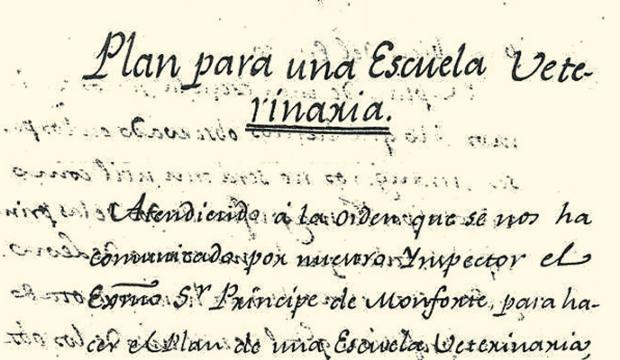 Plan para una Escuela Vete-
rinaria.
Atendiendo á la orden que se nos ha
comunicado por nuestro Ynspector el
Exmo. Sr. Principe de Monforte, para ha-
cer el Plan de una Escuela Veterinaria,